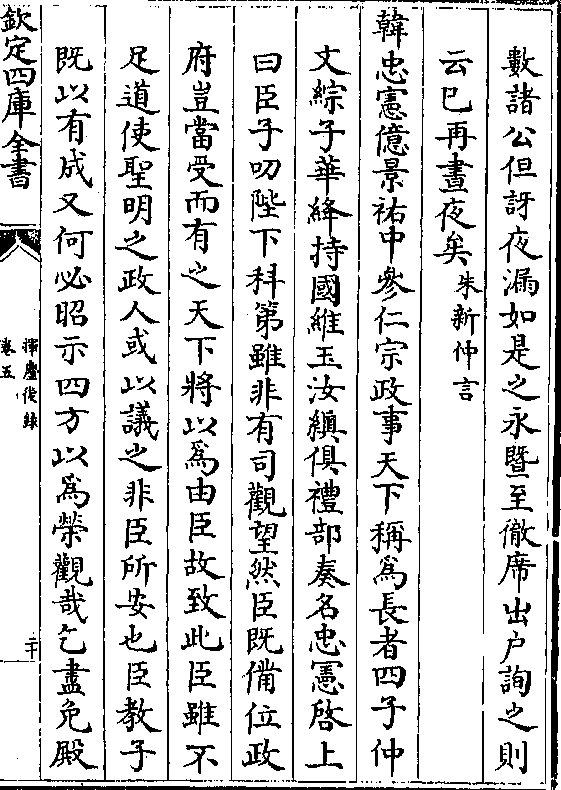 數諸公但訝夜漏如是之永暨至徹席出户詢之則
云已再晝夜矣朱新仲言
韓忠憲億景祐中參仁宗政事天下稱爲長者四子仲
文綜子華絳持國維玉汝縝俱禮部奏名忠憲啓上
曰臣子叨陛下科第雖非有司觀望然臣既備位政
府豈當受而有之天下將以爲由臣故致此臣雖不
足道使聖明之政人或以議之非臣所安也臣教子
既以有成又何必昭示四方以爲榮觀哉乞盡免殿
欽定四庫全書
揮麈後録
卷五
二十